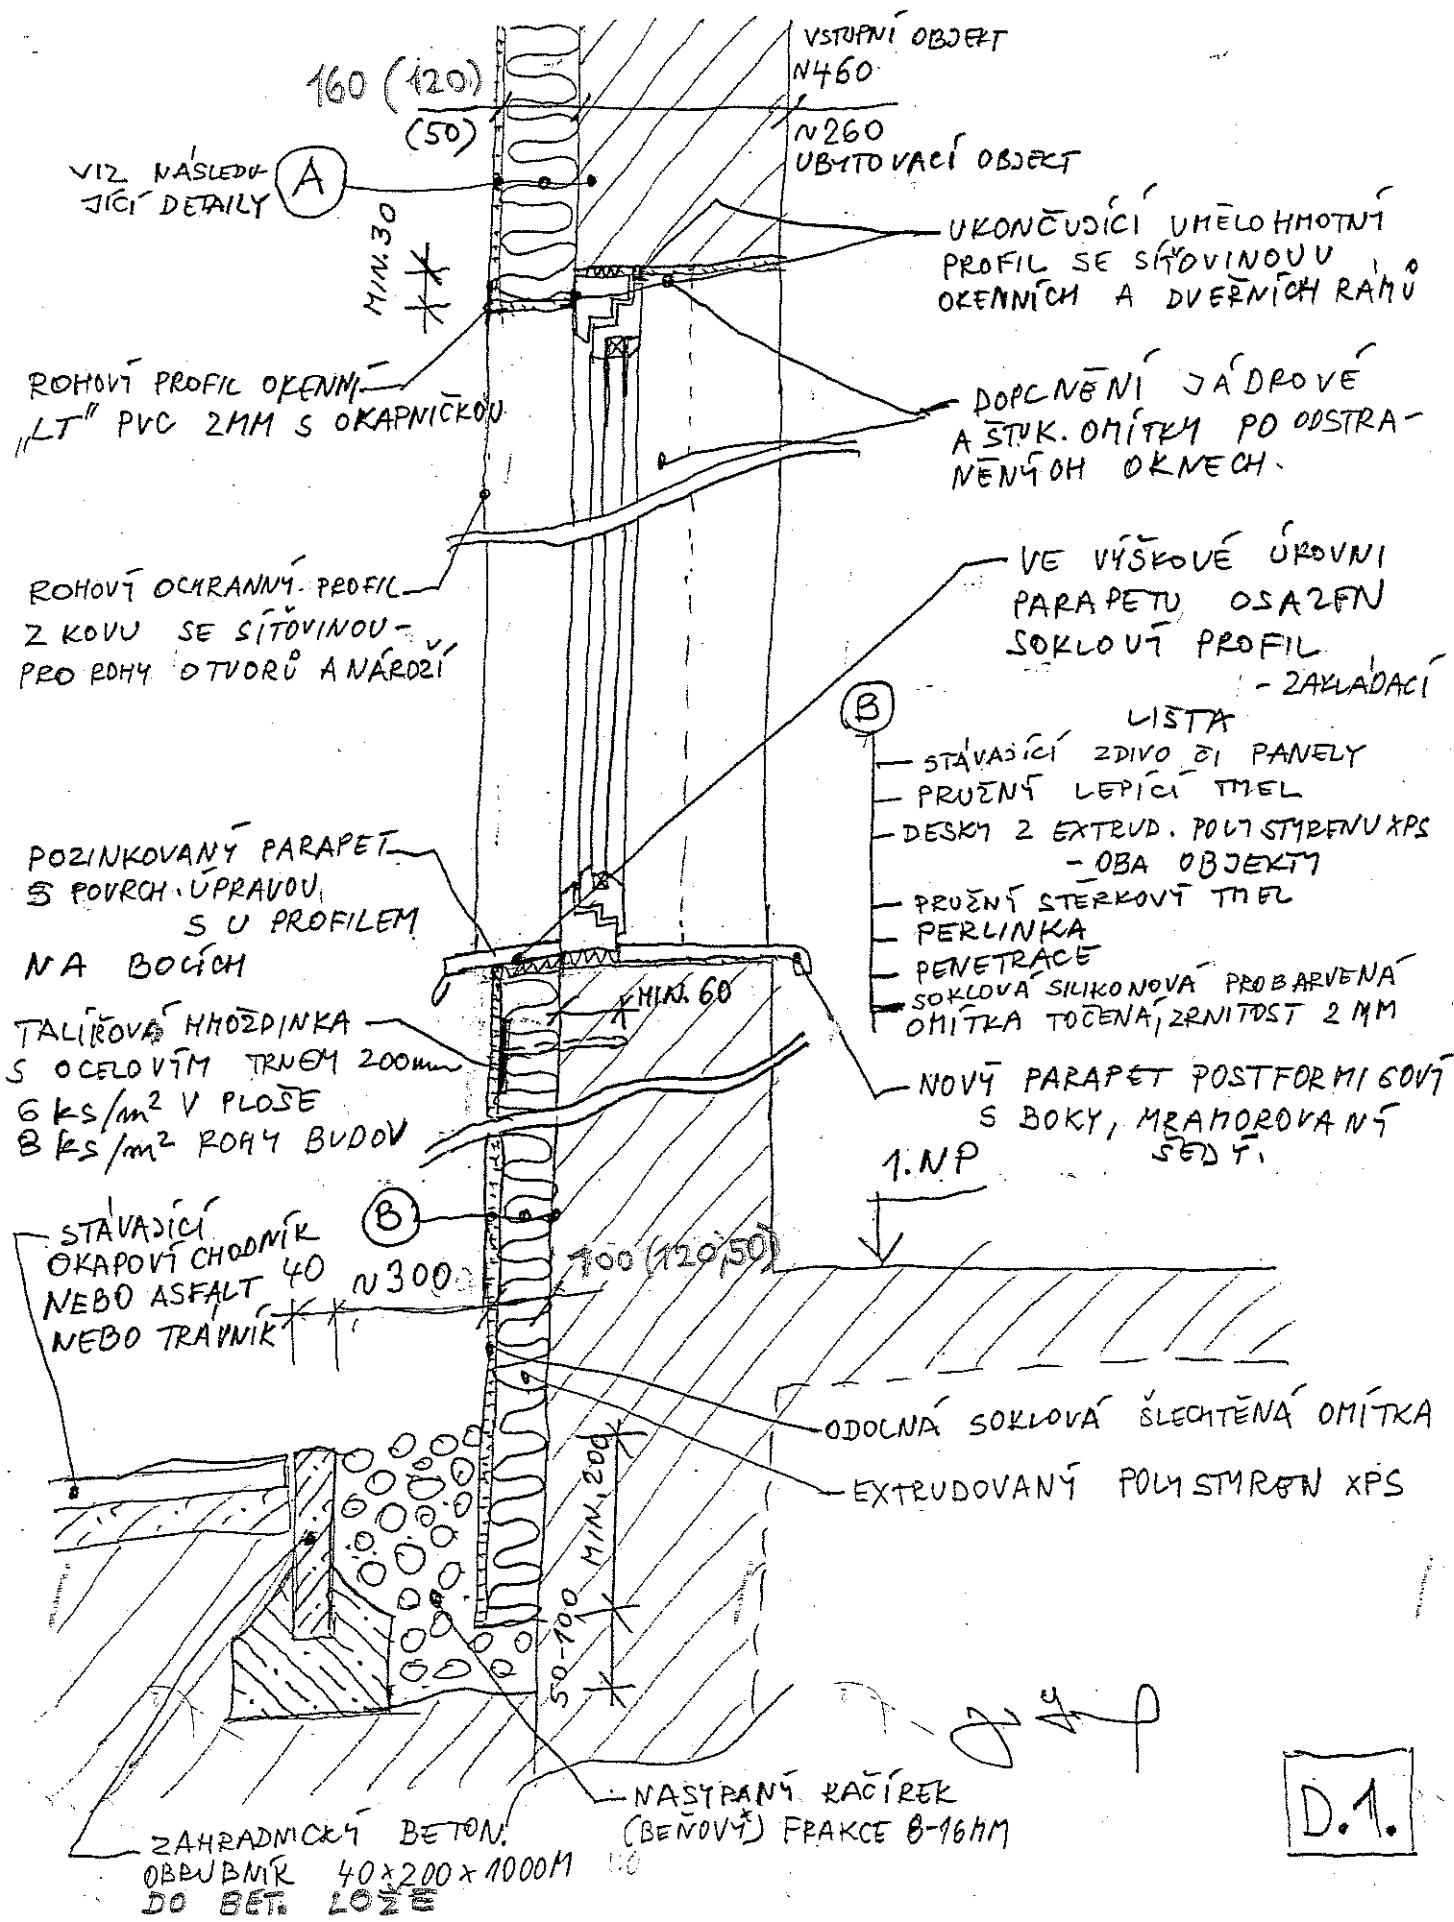 VSTUPNÍ OBJEKT
N460
160 (120)
(50)
N260
UBYTOVACÍ OBJEKT
VIZ NÁSLEDU-
JÍCÍ DETAILY
A
MIN. 30
UKONČUJÍCÍ UMĚLOHMOTNÝ
PROFIL SE SÍŤOVINOU U
OKENNÍCH A DVEŘNÍCH RÁMŮ
ROHOVÝ PROFIL OKENNÍ
„LT" PVC 2MM S OKAPNIČKOU
DOPLNĚNÍ JÁDROVÉ
A ŠTUK. OMÍTKY PO ODSTRA-
NĚNÝCH OKNECH.
ROHOVÝ OCHRANNÝ PROFIL
Z KOVU SE SÍŤOVINOU-
PRO ROHY OTVORŮ A NÁROŽÍ
VE VÝŠKOVÉ ÚROVNI
PARAPETU OSAZEN
SOKLOVÝ PROFIL
- ZAKLÁDACÍ
LIŠTA
B
STÁVAJÍCÍ ZDIVO ČI PANELY
PRUŽNÝ LEPÍCÍ TMEL
DESKY Z EXTRUD. POLYSTYRENU XPS
- OBA OBJEKTY
PRUŽNÝ STĚRKOVÝ TMEL
PERLINKA
PENETRACE
SOKLOVÁ SILIKONOVÁ PROBARVENÁ
OMÍTKA TOČENÁ, ZRNITOST 2 MM
POZINKOVANÝ PARAPET
S POVRCH. ÚPRAVOU
S U PROFILEM
NA BOCÍCH
MIN. 60
TALÍŘOVÁ HMOŽDINKA
S OCELOVÝM TRNEM 200mm
6 ks/m² V PLOŠE
8 ks/m² ROHY BUDOV
NOVÝ PARAPET POSTFORMIGOVÝ
S BOKY, MRAMOROVANÝ
ŠEDÝ.
1.NP
B
STÁVAJÍCÍ
OKAPOVÝ CHODNÍK
NEBO ASFALT
NEBO TRÁVNÍK
40
N300
100 (120,50)
ODOLNÁ SOKLOVÁ ŠLECHTĚNÁ OMÍTKA
EXTRUDOVANÝ POLYSTYREN XPS
MIN. 200
50-100
NASYPANÝ KAČÍREK
(BEŇOVÝ) FRAKCE 8-16MM
ZAHRADNICKÝ BETON.
OBRUBNÍK 40x200x1000M
DO BET. LOŽE
D.1.